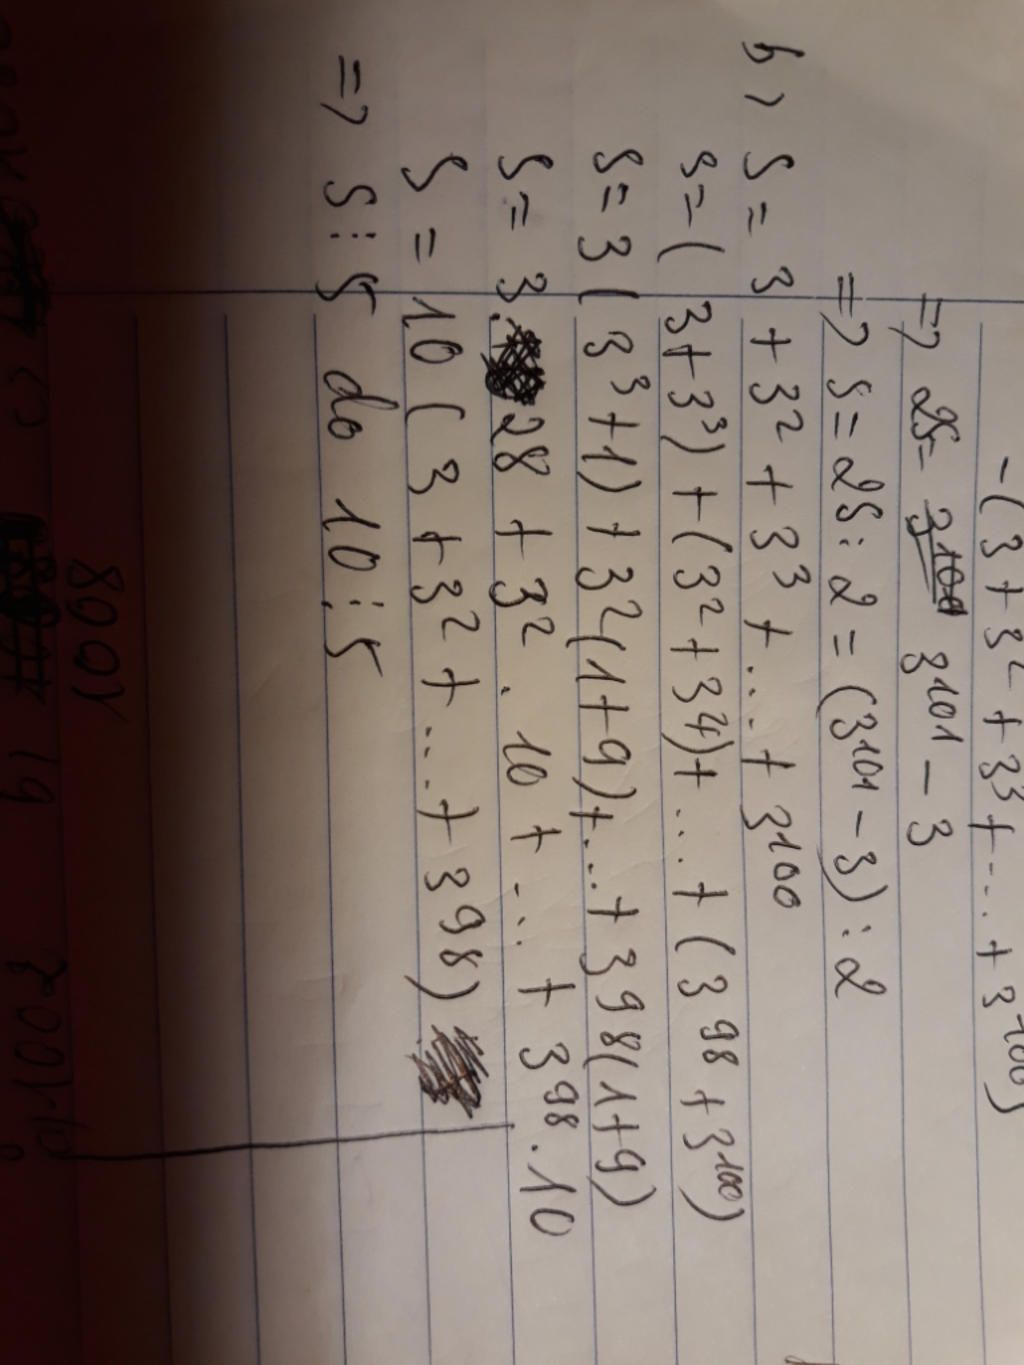 -(3 + 3² + 3³ + ... + 3¹⁰⁰)
=> 2S = 3¹⁰¹ - 3
=> S = 2S : 2 = (3¹⁰¹ - 3) : 2
b> S = 3 + 3² + 3³ + ... + 3¹⁰⁰
S = (3 + 3³) + (3² + 3⁴) + ... + (3⁹⁸ + 3¹⁰⁰)
S = 3(3³ + 1) + 3²(1+9) + ... + 3⁹⁸(1+9)
S = 3. 28 + 3² . 10 + ... + 3⁹⁸ . 10
S = 10 (3 + 3² + ... + 3⁹⁸)
=> S ⋮ 5 do 10 ⋮ 5
1008
c>
b)
1002